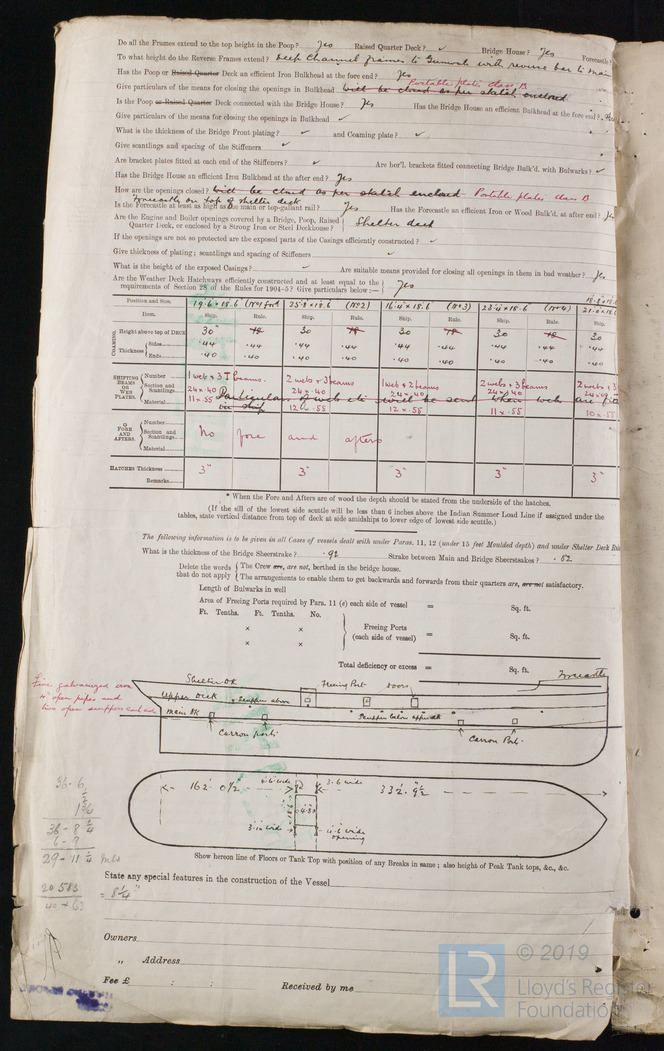 Do all the Frames extend to the top height in the Poop? Yes Raised Quarter Deck? ✓ Bridge House? Yes Forecastle
To what height do the Reverse Frames extend? Deep Channel frames to Gunwale with reverse bar to main
Has the Poop or Raised Quarter Deck an efficient Iron Bulkhead at the fore end? Yes
Portable plates class B
Give particulars of the means for closing the openings in Bulkhead will be closed as per sketch enclosed
Is the Poop or Raised Quarter Deck connected with the Bridge House? Yes Has the Bridge House an efficient Bulkhead at the fore end?
Give particulars of the means for closing the openings in Bulkhead ✓
What is the thickness of the Bridge Front plating? ✓ and Coaming plate? ✓
Give scantlings and spacing of the Stiffeners ✓
Are bracket plates fitted at each end of the Stiffeners? ✓ Are hor'l. brackets fitted connecting Bridge Bulk'd. with Bulwarks? ✓
Has the Bridge House an efficient Iron Bulkhead at the after end? Yes
How are the openings closed? will be closed as per sketch enclosed Portable plates class B
Forecastle on top of shelter deck
Is the Forecastle at least as high as the main or top-gallant rail? Yes Has the Forecastle an efficient Iron or Wood Bulk'd. at after end?
Are the Engine and Boiler openings covered by a Bridge, Poop, Raised
Quarter Deck, or enclosed by a Strong Iron or Steel Deckhouse? Shelter deck
If the openings are not so protected are the exposed parts of the Casings efficiently constructed? ✓
Give thickness of plating; scantlings and spacing of Stiffeners ✓
What is the height of the exposed Casings? ✓ Are suitable means provided for closing all openings in them in bad weather? Yes
Are the Weather Deck Hatchways efficiently constructed and at least equal to the
requirements of Section 28 of the Rules for 1904-5? Give particulars below:— Yes
Position and Size. 19.6 × 18.6 (No 1 ford 25.8 × 18.6 (No 2) 16.4 × 18.6 (No 3) 23.4 × 18.6 (No 4)
Item. Ship. Rule. Ship. Rule. Ship. Rule. Ship. Rule. Ship.
COAMING. Height above top of DECK 30" 18 30 18 30 18 30 18 30
Thickness Sides .44 .44 .44 .44 .44 .44 .44 .44 .44
Ends .40 .40 .40 .40 .40 .40 .40 .40 .40
SHIFTING BEAMS OR WEB PLATES. Number 1 web & 3 T beams. 2 webs & 3 beams 1 web & 2 beams 2 webs & 3 beams 2 webs & 3
Section and Scantlings. 24 × .40 24 × .40 24 × .40 24 × .40
Material 11 × .55 Particulars of web etc will be sent when web are
on ship 12 × .55 12 × .55 11 × .55 10 × .55
FORE AND AFTERS. Number
Section and Scantlings. No fore and afters
Material
HATCHES Thickness 3" 3" 3" 3" 3"
Remarks
* When the Fore and Afters are of wood the depth should be stated from the underside of the hatches.
(If the sill of the lowest side scuttle will be less than 6 inches above the Indian Summer Load Line if assigned under the
tables, state vertical distance from top of deck at side amidships to lower edge of lowest side scuttle.)
The following information is to be given in all Cases of vessels dealt with under Paras. 11, 12 (under 15 feet Moulded depth) and under Shelter Deck
What is the thickness of the Bridge Sheerstrake? .92 Strake between Main and Bridge Sheerstrakes? .52
Delete the words The Crew are, are not, berthed in the bridge house.
that do not apply The arrangements to enable them to get backwards and forwards from their quarters are, are not satisfactory.
Length of Bulwarks in well
Area of Freeing Ports required by Para. 11 (e) each side of vessel = Sq. ft.
Ft. Tenths. Ft. Tenths. No.
× × Freeing Ports
(each side of vessel) = Sq. ft.
× ×
Total deficiency or excess = Sq. ft.
Shelter Dk Freeing Port Doors Forecastle
Five galvanized iron
4" open pipes and
two open scuppers
Upper Deck Scupper above
Main Dk Scupper below upper dk
Carron port Carron Port
162' 0½" 3.6 wide 332' 9½
3.10 wide 4.6 wide
opening
36-6
38-8¼
29-11¼
20583
= 8¼"
Show hereon line of Floors or Tank Top with position of any Breaks in same; also height of Peak Tank tops, &c., &c.
State any special features in the construction of the Vessel
Owners
„ Address
Fee £ : : Received by me
LR © 2019
Lloyd's Register
Foundation